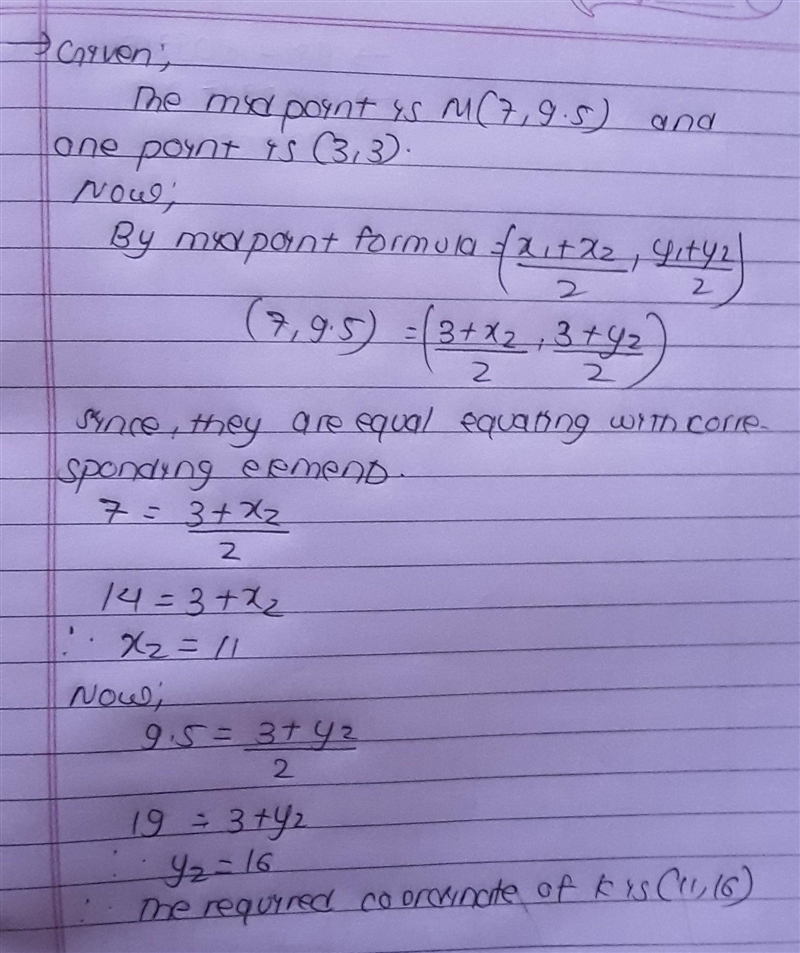 → Given;
The midpoint is M(7, 9.5) and
one point is (3,3).
Now;
By midpoint formula = (x₁+x₂/2, y₁+y₂/2)
(7, 9.5) = (3+x₂/2, 3+y₂/2)
since, they are equal equating with corre-
sponding elements.
7 = 3+x₂/2
14 = 3+x₂
∴ x₂ = 11
Now;
9.5 = 3+y₂/2
19 = 3+y₂
∴ y₂ = 16
∴ The required coordinate of K is (11,16)